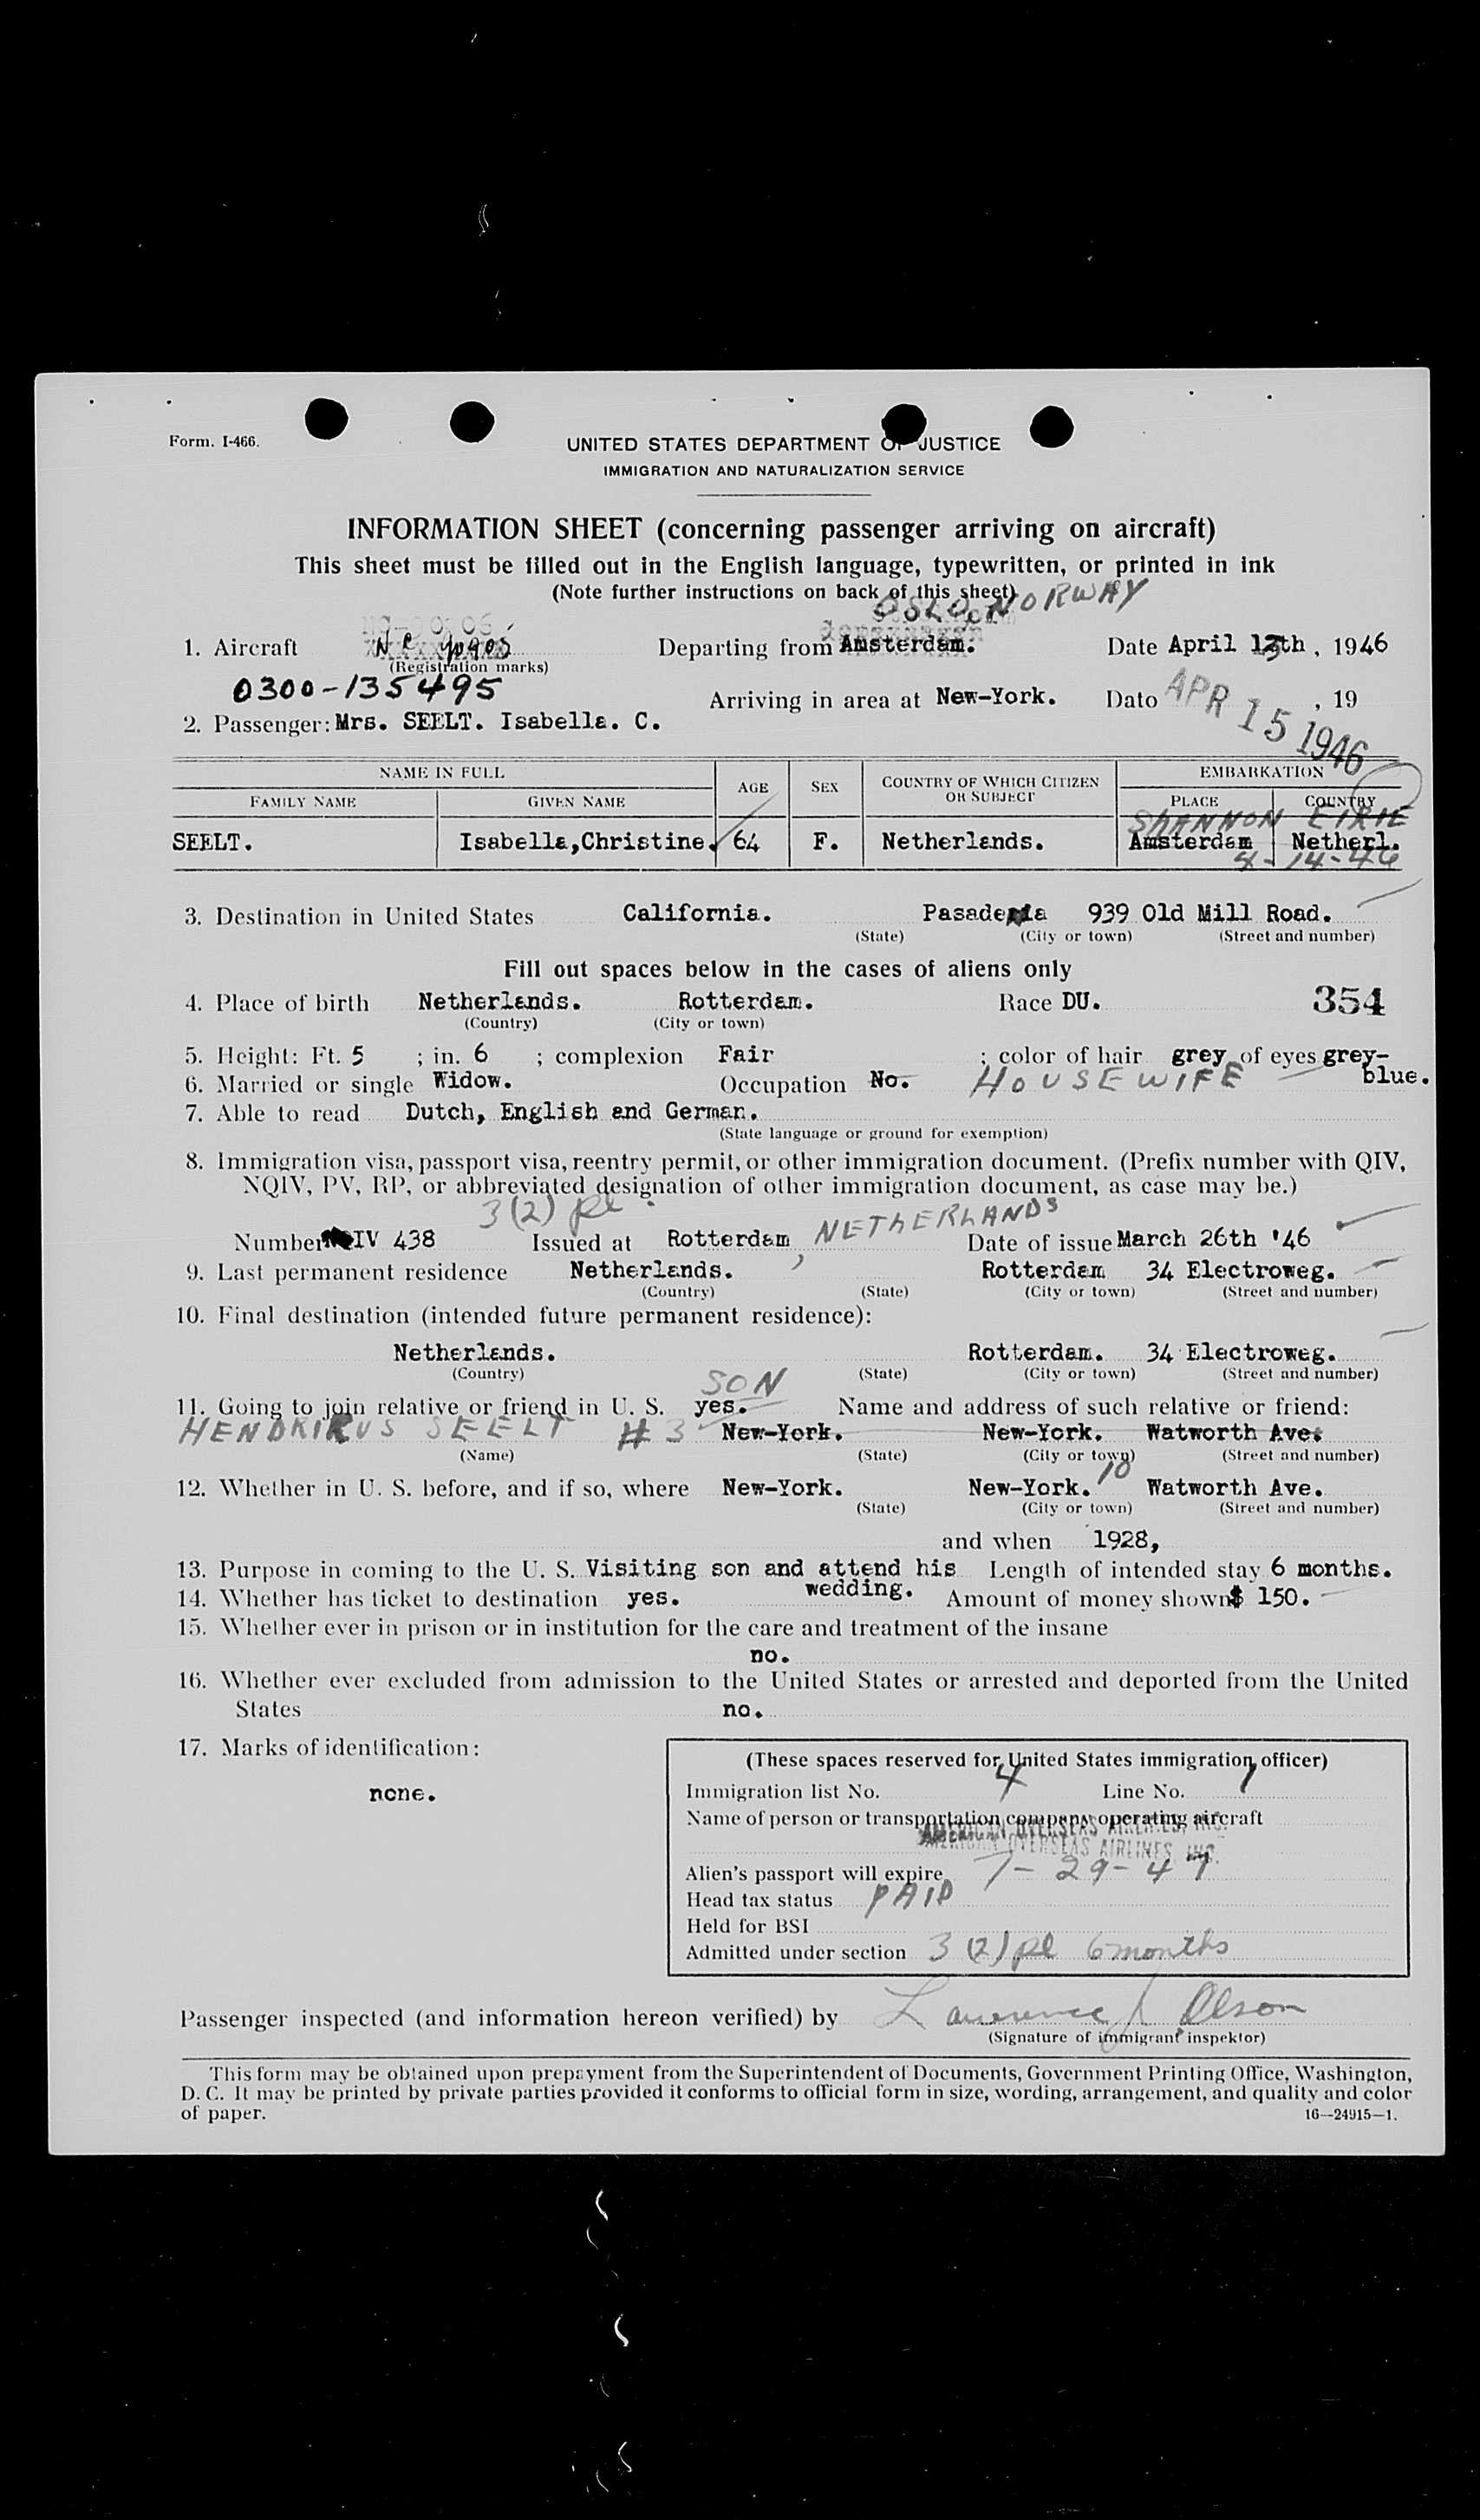 Form. I-466.
UNITED STATES DEPARTMENT OF JUSTICE
IMMIGRATION AND NATURALIZATION SERVICE
INFORMATION SHEET (concerning passenger arriving on aircraft)
This sheet must be filled out in the English language, typewritten, or printed in ink
(Note further instructions on back of this sheet)
OSLO, NORWAY
1. Aircraft NC Departing from Amsterdam. Date April 13th, 1946
(Registration marks)
0300-135495
Arriving in area at New-York. Date APR 15 1946 , 19
2. Passenger: Mrs. SEELT. Isabella. C.
NAME IN FULL AGE SEX COUNTRY OF WHICH CITIZEN OR SUBJECT EMBARKATION
FAMILY NAME GIVEN NAME PLACE COUNTRY
SHANNON EIRIE
SEELT. Isabella, Christine. 64 F. Netherlands. Amsterdam Netherl.
4-14-46
3. Destination in United States California. Pasadena 939 Old Mill Road.
(State) (City or town) (Street and number)
Fill out spaces below in the cases of aliens only
4. Place of birth Netherlands. Rotterdam. Race DU. 354
(Country) (City or town)
5. Height: Ft. 5 ; in. 6 ; complexion Fair ; color of hair grey of eyes grey-
blue.
6. Married or single Widow. Occupation No. HOUSEWIFE
7. Able to read Dutch, English and German.
(State language or ground for exemption)
8. Immigration visa, passport visa, reentry permit, or other immigration document. (Prefix number with QIV,
NQIV, PV, RP, or abbreviated designation of other immigration document, as case may be.)
3(2) pl.
Number IV 438 Issued at Rotterdam, NETHERLANDS Date of issue March 26th '46
9. Last permanent residence Netherlands. Rotterdam 34 Electroweg.
(Country) (State) (City or town) (Street and number)
10. Final destination (intended future permanent residence):
Netherlands. Rotterdam. 34 Electroweg.
(Country) (State) (City or town) (Street and number)
SON
11. Going to join relative or friend in U. S. yes. Name and address of such relative or friend:
HENDRIKUS SEELT #3 New-York. New-York. Watworth Ave.
(Name) (State) (City or town) (Street and number)
10
12. Whether in U. S. before, and if so, where New-York. New-York. Watworth Ave.
(State) (City or town) (Street and number)
and when 1928,
13. Purpose in coming to the U. S. Visiting son and attend his wedding. Length of intended stay 6 months.
14. Whether has ticket to destination yes. Amount of money shown $ 150.
15. Whether ever in prison or in institution for the care and treatment of the insane
no.
16. Whether ever excluded from admission to the United States or arrested and deported from the United
States no.
17. Marks of identification:
none.
(These spaces reserved for United States immigration officer)
Immigration list No. 4 Line No. 1
Name of person or transportation company operating aircraft
AMERICAN OVERSEAS AIRLINES, INC.
AMERICAN OVERSEAS AIRLINES INC.
Alien's passport will expire 7-29-47
Head tax status PAID
Held for BSI
Admitted under section 3(2) pl 6 months
Passenger inspected (and information hereon verified) by Lawrence J. Olson
(Signature of immigrant inspektor)
This form may be obtained upon prepayment from the Superintendent of Documents, Government Printing Office, Washington,
D. C. It may be printed by private parties provided it conforms to official form in size, wording, arrangement, and quality and color
of paper.
16—24915—1.